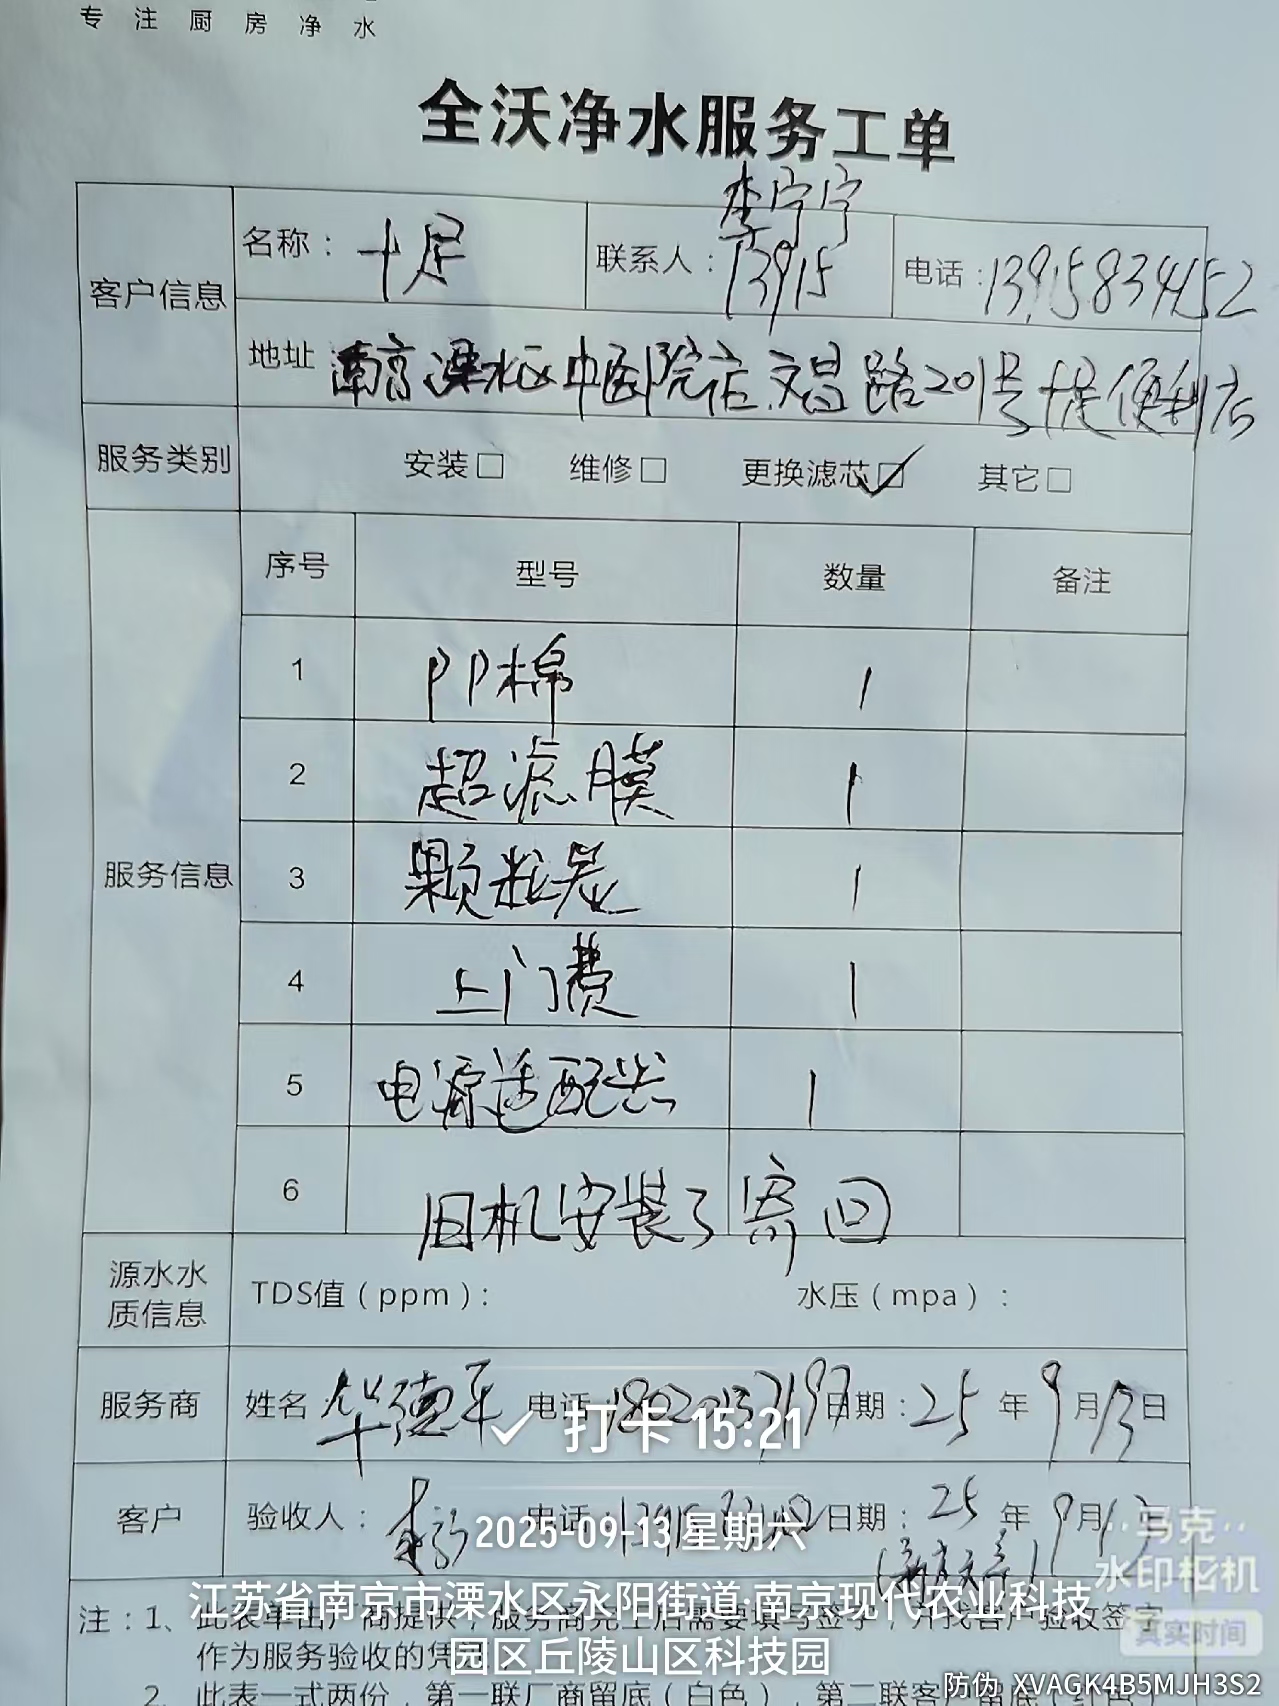 专注厨房净水
全沃净水服务工单
客户信息
名称：十足
联系人：李宁宁 13915
电话：13915834152
地址 南京溧水区中医院店.文昌路201号十足便利店
服务类别 安装□ 维修□ 更换滤芯☑ 其它□
服务信息
序号 型号 数量 备注
1 PP棉 1
2 超滤膜 1
3 颗粒炭 1
4 上门费 1
5 电源适配器 1
6 旧机安装了寄回
源水水质信息
TDS值（ppm）： 水压（mpa）：
服务商 姓名 华德平 电话 日期：25年9月13日
客户 验收人： 电话： 日期：25年9月13日
打卡 15:21
2025-09-13 星期六
江苏省南京市溧水区永阳街道·南京现代农业科技
园区丘陵山区科技园
注：1、此表单由厂商提供，服务商完工后需要填写签字，并找客户验收签字
作为服务验收的凭
2、此表一式两份，第一联厂商留底（白色），第二联客户留底
马克
水印相机
真实时间
防伪 XVAGK4B5MJH3S2